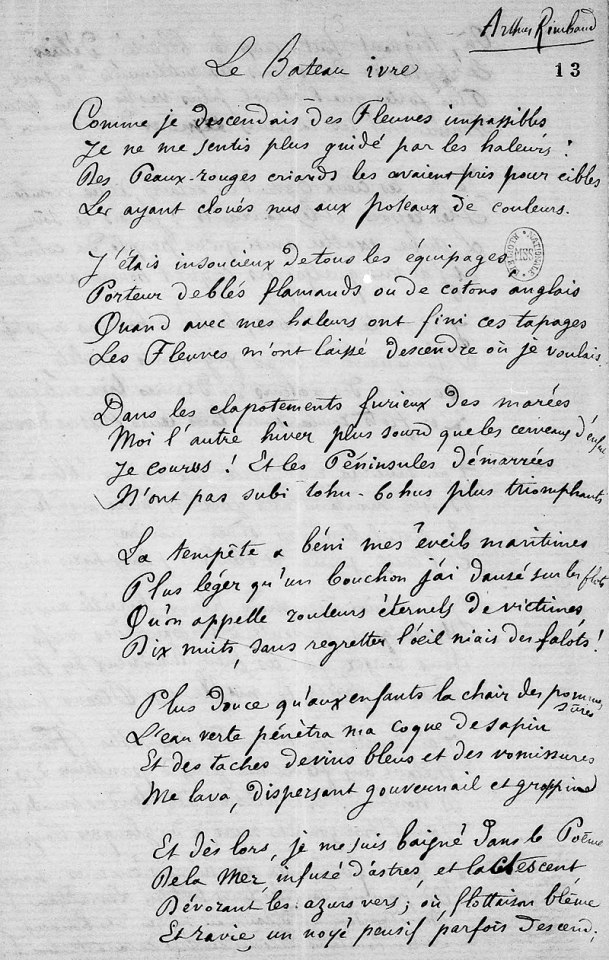 Arthur Rimbaud
13
Le Bateau ivre
Comme je descendais des Fleuves impassibles
Je ne me sentis plus guidé par les haleurs :
Des Peaux-rouges criards les avaient pris pour cibles
Les ayant cloués nus aux poteaux de couleurs.
J'étais insoucieux de tous les équipages
Porteur de blés flamands ou de cotons anglais
Quand avec mes haleurs ont fini ces tapages
Les Fleuves m'ont laissé descendre où je voulais.
Dans les clapotements furieux des marées
Moi l'autre hiver plus sourd que les cerveaux d'enfants
Je courus ! Et les Péninsules démarrées
N'ont pas subi tohu-bohus plus triomphants
La tempête a béni mes éveils maritimes
Plus léger qu'un bouchon j'ai dansé sur les flots
Qu'on appelle rouleurs éternels de victimes
Dix nuits, sans regretter l'oeil niais des falots !
Plus douce qu'aux enfants la chair des pommes sûres
L'eau verte pénétra ma coque de sapin
Et des taches de vins bleus et des vomissures
Me lava, dispersant gouvernail et grappin
Et dès lors, je me suis baigné dans le Poème
De la Mer, infusé d'astres, et lactescent
Dévorant les azurs vers ; où flottaison blême
Et ravie, un noyé pensif parfois descend ;